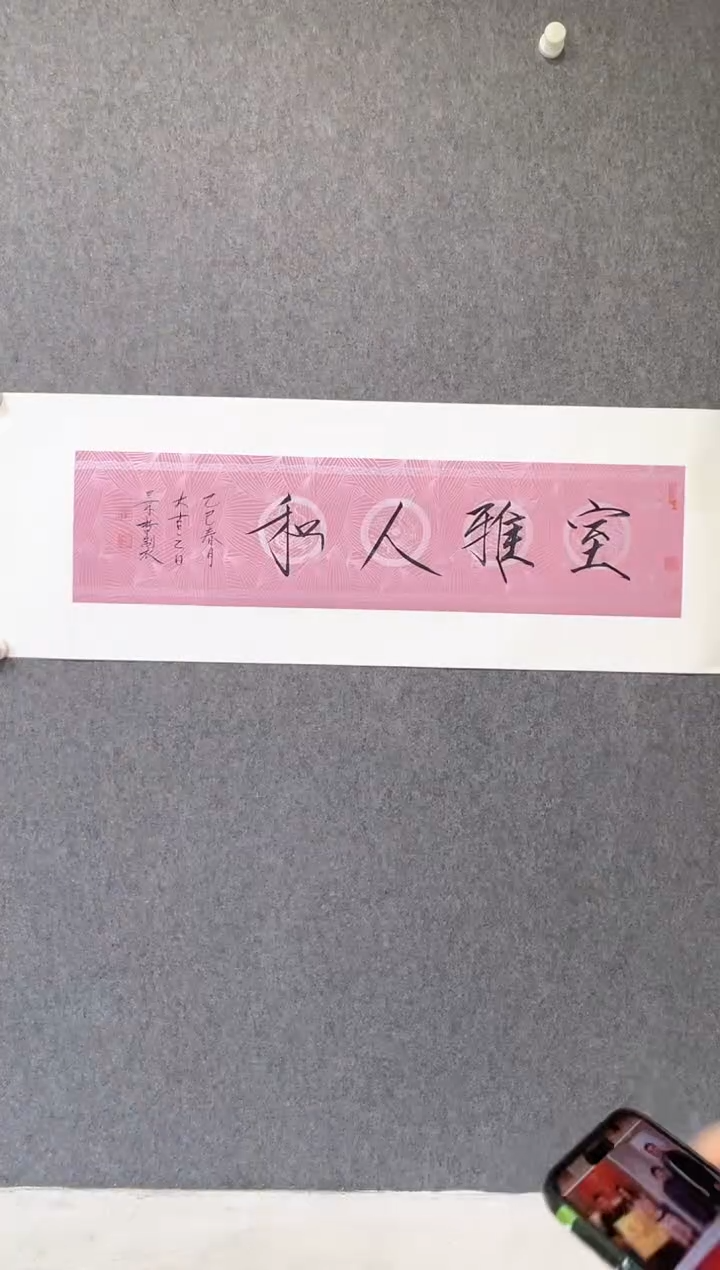 室雅人和
乙巳春月
大吉之日